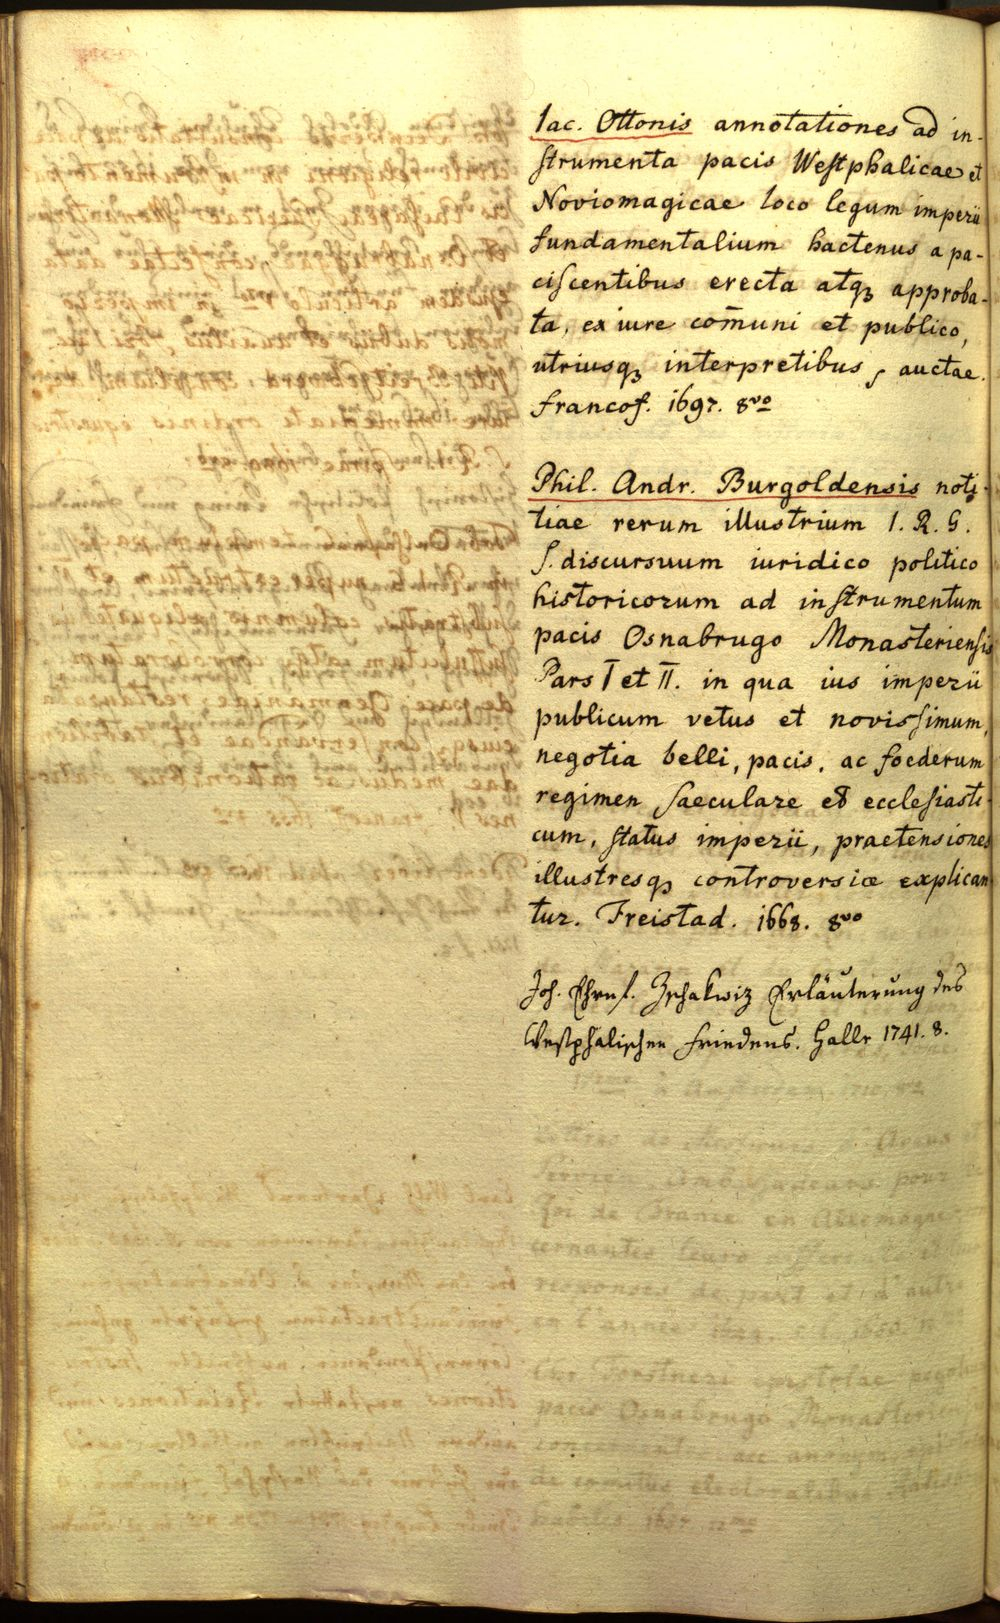 Iac. Ottonis annotationes ad in-
strumenta pacis Westphalicae et
Noviomagicae loco legum imperii
fundamentalium hactenus a pa-
ciscentibus erecta atq; approba-
ta, ex iure com̄uni et publico,
utriusq; interpretibus, auctae.
Francof. 1697. 8vo
Phil. Andr. Burgoldensis noti-
tiae rerum illustrium I. R. G.
s. discursuum iuridico politico
historicorum ad instrumentum
pacis Osnabrugo Monasteriensis
Pars I et II. in qua ius imperii
publicum vetus et novissimum,
negotia belli, pacis, ac foederum
regimen saeculare et ecclesiasti-
cum, status imperii, praetensiones
illustresq; controversiæ explican
tur. Freistad. 1668. 8vo
Joh. Ehrnf. Zschakwiz Erläuterung des
Westphälischen Friedens. Halle 1741. 8.